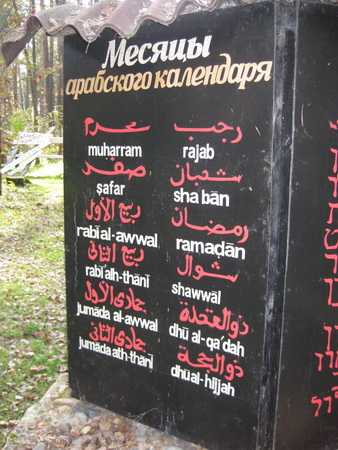 Месяцы
арабского календаря
محرم
muharram
صفر
ṣafar
ربيع الأول
rabi al-awwal
ربيع الثاني
rabi alh-thānī
جمادى الأول
jumāda al-awwal
جمادى الثاني
jumāda ath-thānī
رجب
rajab
شعبان
sha bān
رمضان
ramaḍān
شوال
shawwāl
ذو القعدة
dhū al-qa'dah
ذو الحجة
dhū al-hijjah